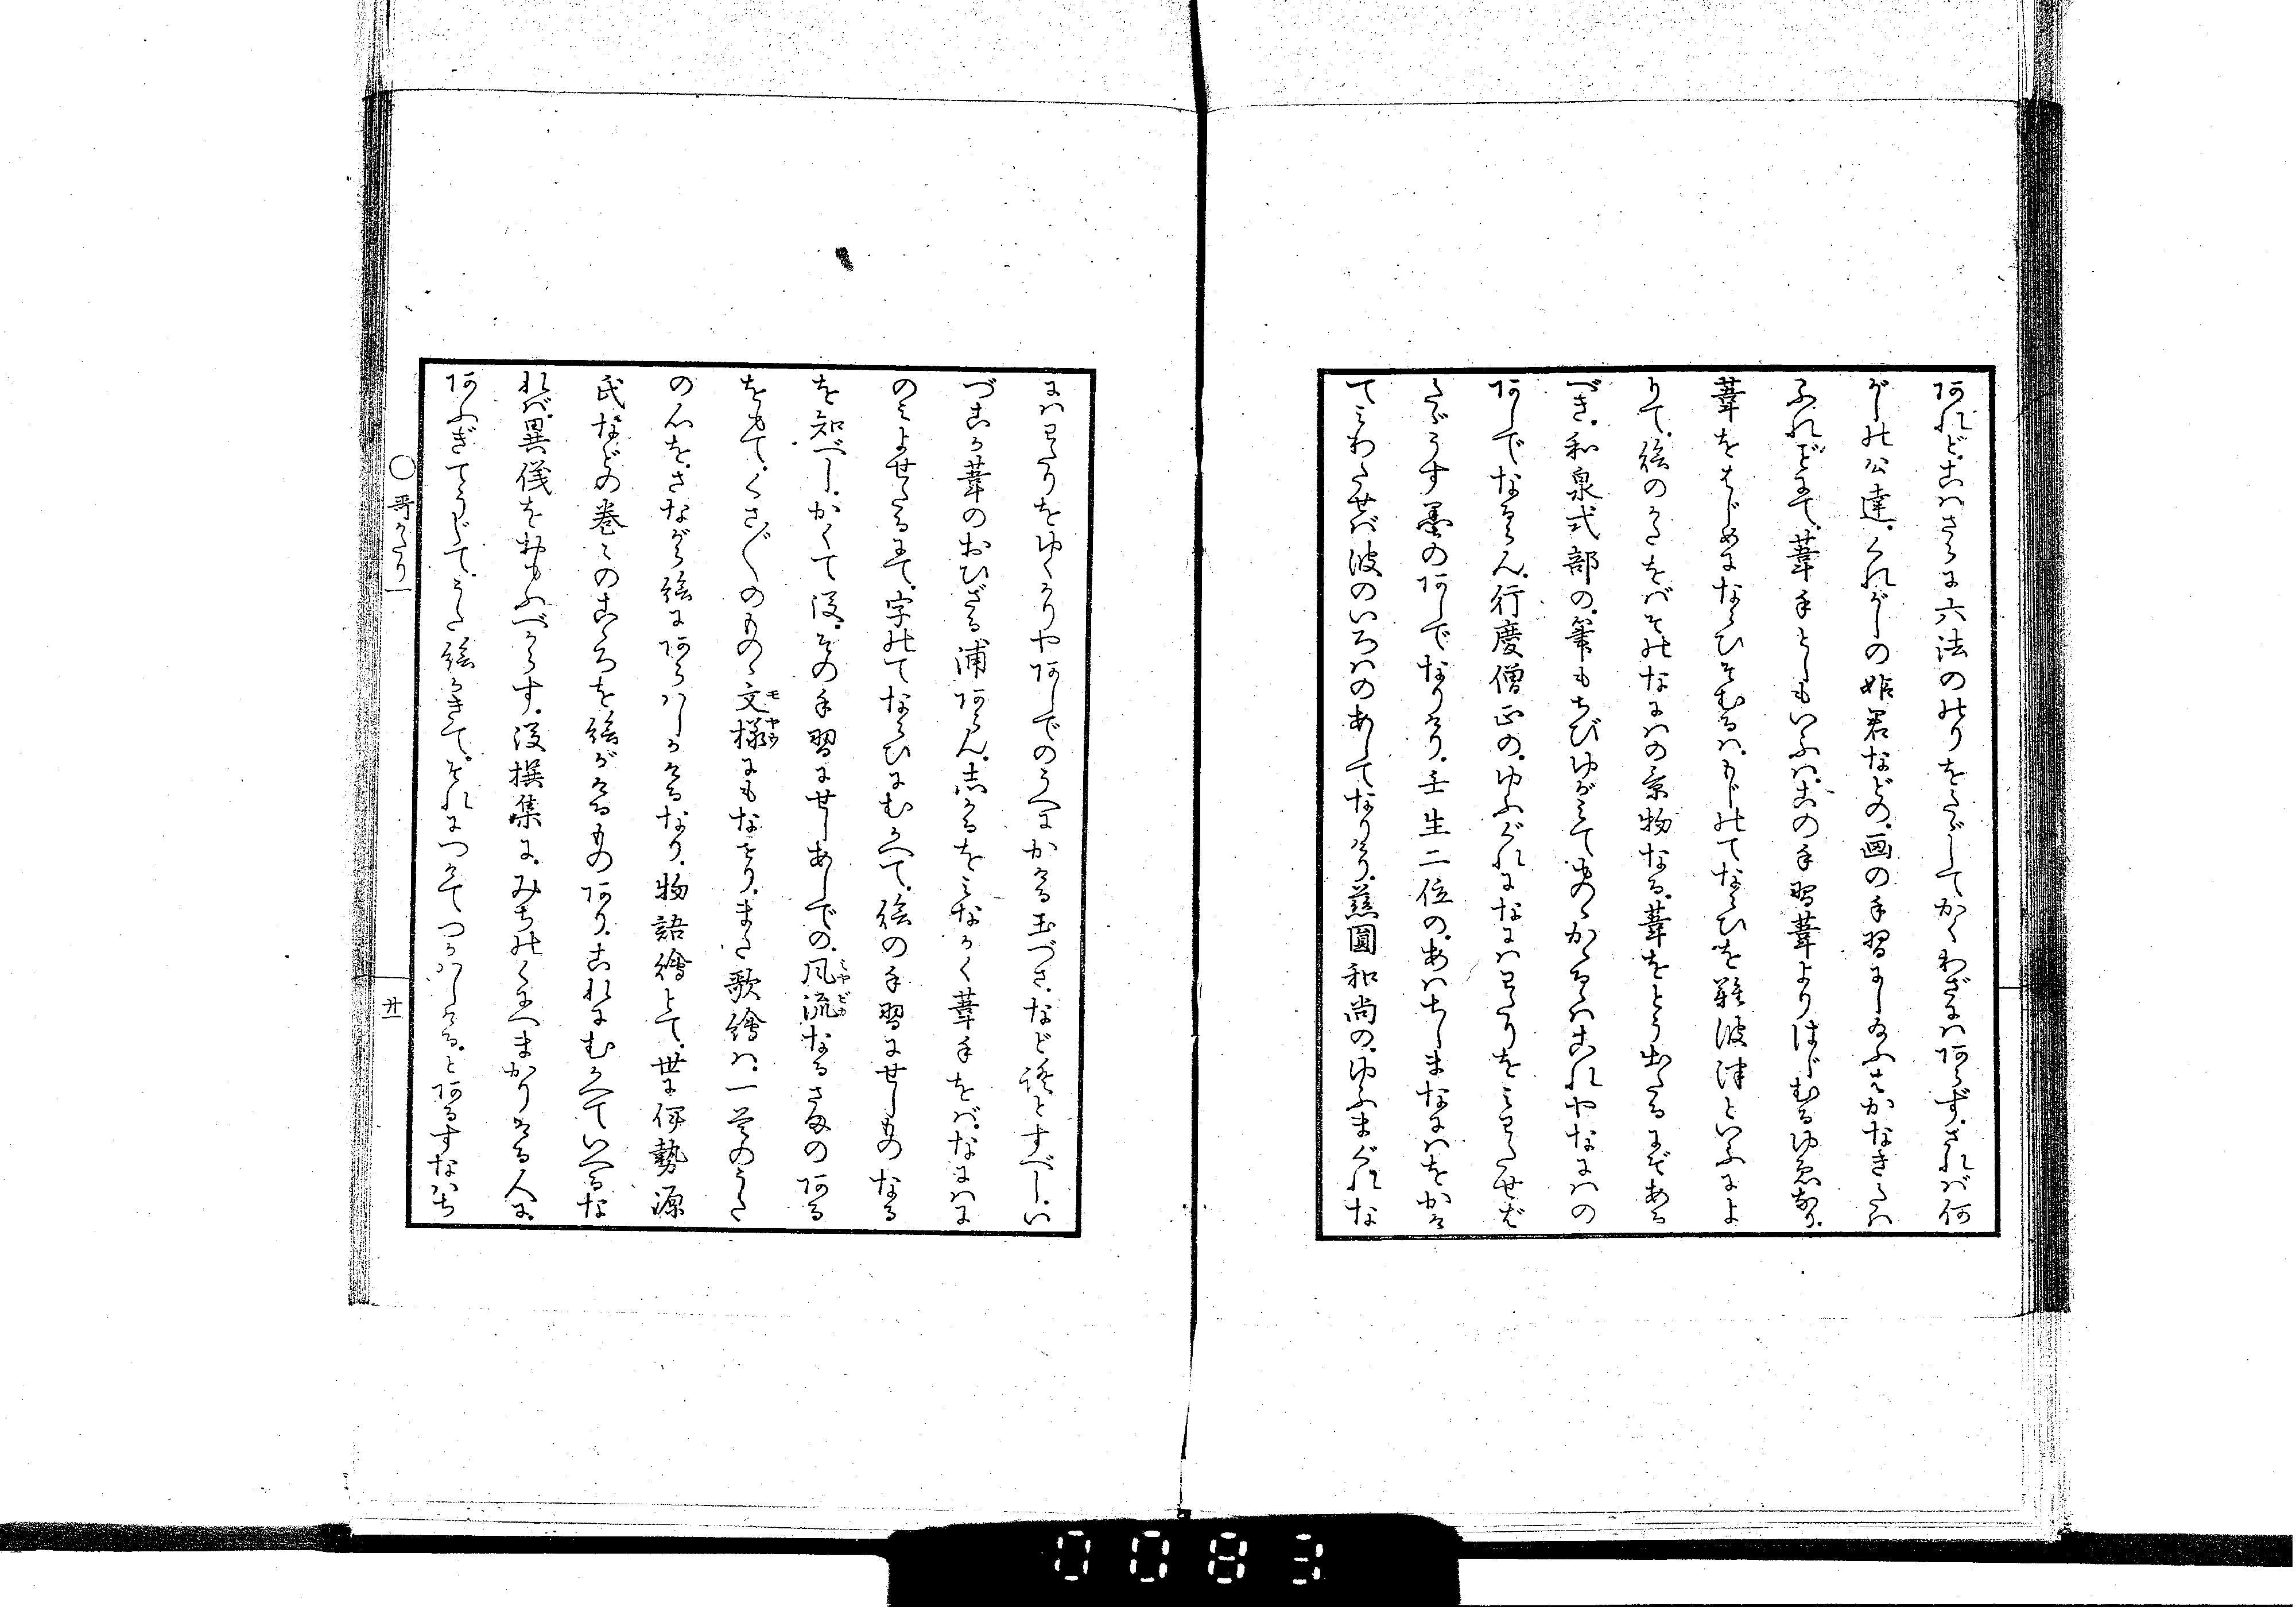 あれど。こはさらに六法ののりをたゞしてかくわざにはあらず。されば何
がしの公達。くれがしの姫君などの。画の手習にしたまふはかなきたは
ふれどにて。葦手としもいふは。この手習葦よりはじむるゆゑなり。
葦をはじめにならひそむるは。もじのてならひを難波津といふによ
りて。絵のかたをばそのなにはの景物なる。葦をとう出たるにぞある
べき。和泉式部の。筆もちびゆがみてものゝかゝるゝはこれやなにはの
あしでなるらん。行慶僧正の。ゆふぐれになにはわたりをみわたせば
たゞうす墨のあしでなりけり。壬生二位の。あはぢしまなにはをかけ
てみわたせば波のいろはのあしてなりけり。慈圓和尚の。ゆふまぐれな
にはわたりをゆくかりやあしでのうへにかける玉づさ。など證とすべし。い
づこか葦のおひざる浦あらん。志かるをみなかく葦手をば。なにはに
のみよせたるにて。字のてならひにむかへて。絵の手習にせしものなる
を知べし。かくて後。その手習にせしあしでの。風流なるさまのある
をもて。くさ〴〵のものゝ文様にもなせり。また歌繪は。一首のうた
の心を。さながら絵にあらはしかけるなり。物語繪とて。世に伊勢源
氏などの巻々のこゝろを絵がけるものあり。これにむかへていへるな
れば。異儀をおもふべからす。後撰集に。みちのくにへまかりける人に。
あふぎてうじて。うた絵かきて。それにつけてつかはしける。とあるすなはち
○哥がたり一
廿一